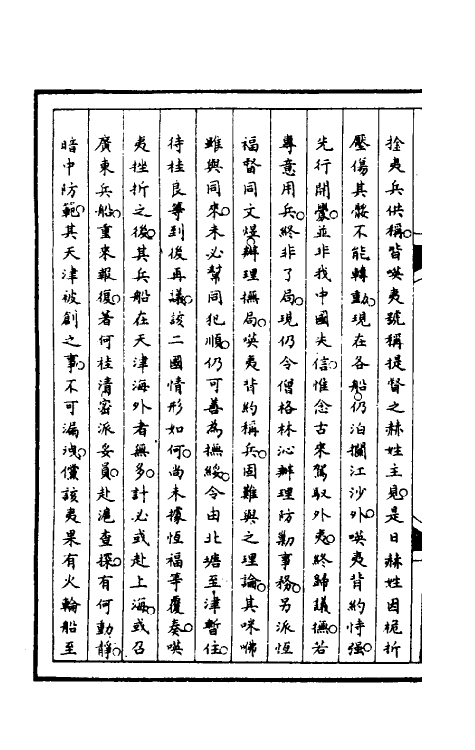 拴夷兵供稱。皆㖫夷號稱提督之赫姓主見。是日赫姓因桅折
壓傷其骽不能轉動。現在各船。仍泊攔江沙外。㖫夷背約恃强。
先行開釁。並非我中國失信。惟念古來駕馭外夷。終歸議撫。若
專意用兵。終非了局。現仍令僧格林沁辦理防勦事務。另派恆
福督同文煜。辦理撫局。㖫夷背約稱兵。固難與之理論。其咪㘄
雖與同來。未必幫同犯順。仍可善為撫綏。令由北塘至津暫住。
待桂良等到後再議。該二國情形如何。尚未據恆福等覆奏。㖫
夷挫折之後。其兵船在天津海外者無多。計必或赴上海。或召
廣東兵船。重來報復。著何桂清密派妥員。赴滬查探。有何動靜。
暗中防範。其天津被創之事。不可漏洩。儻該夷果有火輪船至